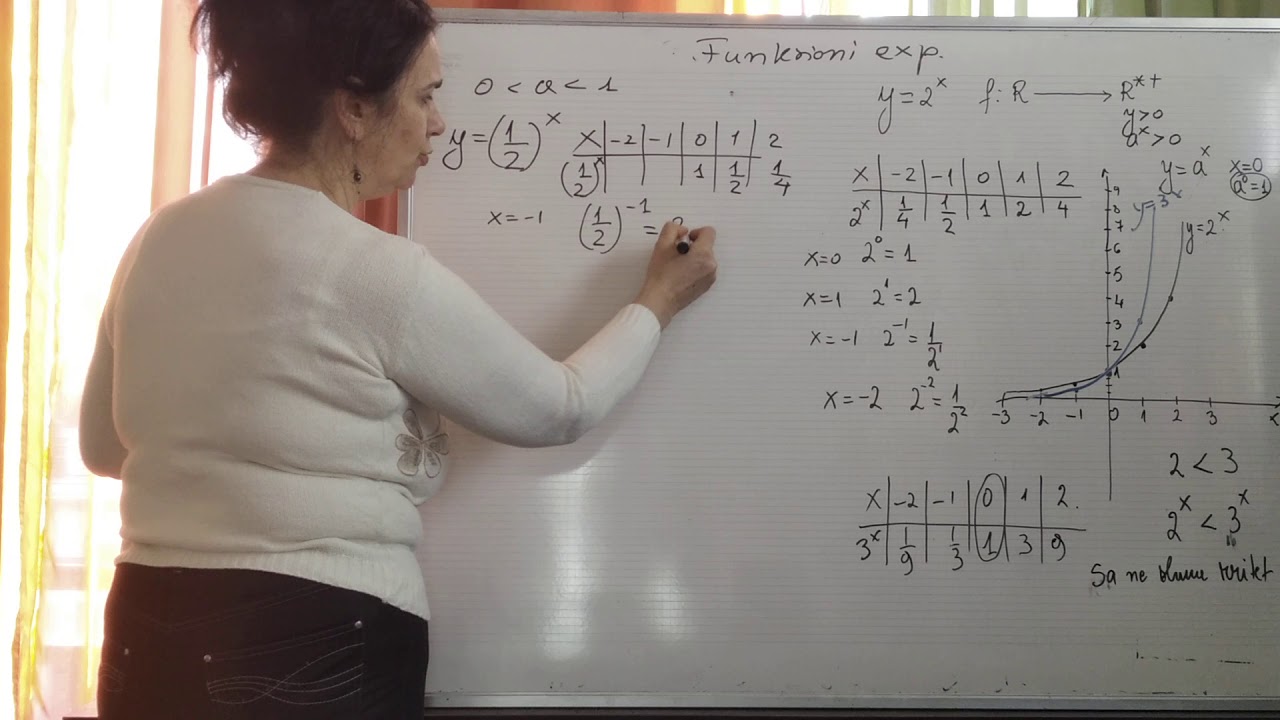 Funksioni exp.
0 < a < 1
y = (1/2)^x
x | -2 | -1 | 0 | 1 | 2
(1/2)^x | | | 1 | 1/2 | 1/4
x = -1 (1/2)^-1 = 2
y = 2^x f: R ⟶ R*+
y > 0
a^x > 0
x | -2 | -1 | 0 | 1 | 2
2^x | 1/4 | 1/2 | 1 | 2 | 4
x = 0 2^0 = 1
x = 1 2^1 = 2
x = -1 2^-1 = 1/2^1
x = -2 2^-2 = 1/2^2
y = a^x x = 0
a^0 = 1
y = 3^x
y = 2^x
9
8
7
6
5
4
3
2
1
-3 -2 -1 0 1 2 3
x | -2 | -1 | 0 | 1 | 2
3^x | 1/9 | 1/3 | 1 | 3 | 9
2 < 3
2^x < 3^x
Sa ne